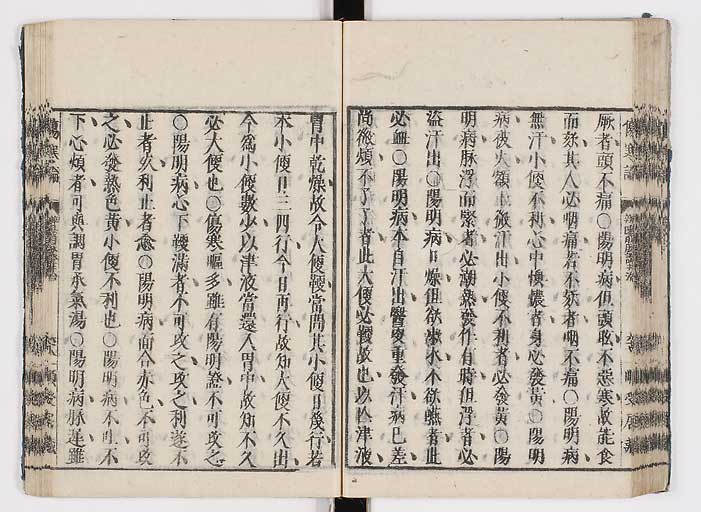 厥者頭不痛○陽明病但頭眩不惡寒故能食
而欬其人必咽痛若不欬者咽不痛○陽明病
無汗小便不利心中懊憹者身必發黃○陽明
病被火額上微汗出小便不利者必發黃○陽
明病脉浮而緊者必潮熱發作有時但浮者必
盜汗出○陽明病口燥但欲漱水不欲嚥者此
必衄○陽明病本自汗出醫更重發汗病已差
尚微煩不了了者此大便必鞕故也以亡津液
胃中乾燥故令大便鞕當問其小便日幾行若
本小便日三四行今日再行故知大便不久出
今爲小便數少以津液當還入胃中故知不久
必大便也○傷寒嘔多雖有陽明證不可攻之
○陽明病心下鞕滿者不可攻之攻之利遂不
止者死利止者愈○陽明病面合赤色不可攻
之必發熱色黃小便不利也○陽明病不吐不
下心煩者可與調胃承氣湯○陽明病脉遲雖
傷寒論
傷寒論